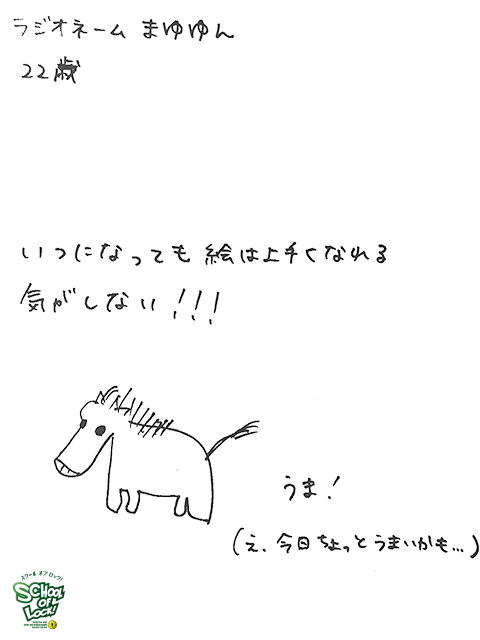 ラジオネーム まゆゆん
22歳
いつになっても絵は上手くなれる
気がしない!!!
うま!
(え、今日ちょっとうまいかも...)
スクール オブ ロック!
SCHOOL
OF
LOCK!